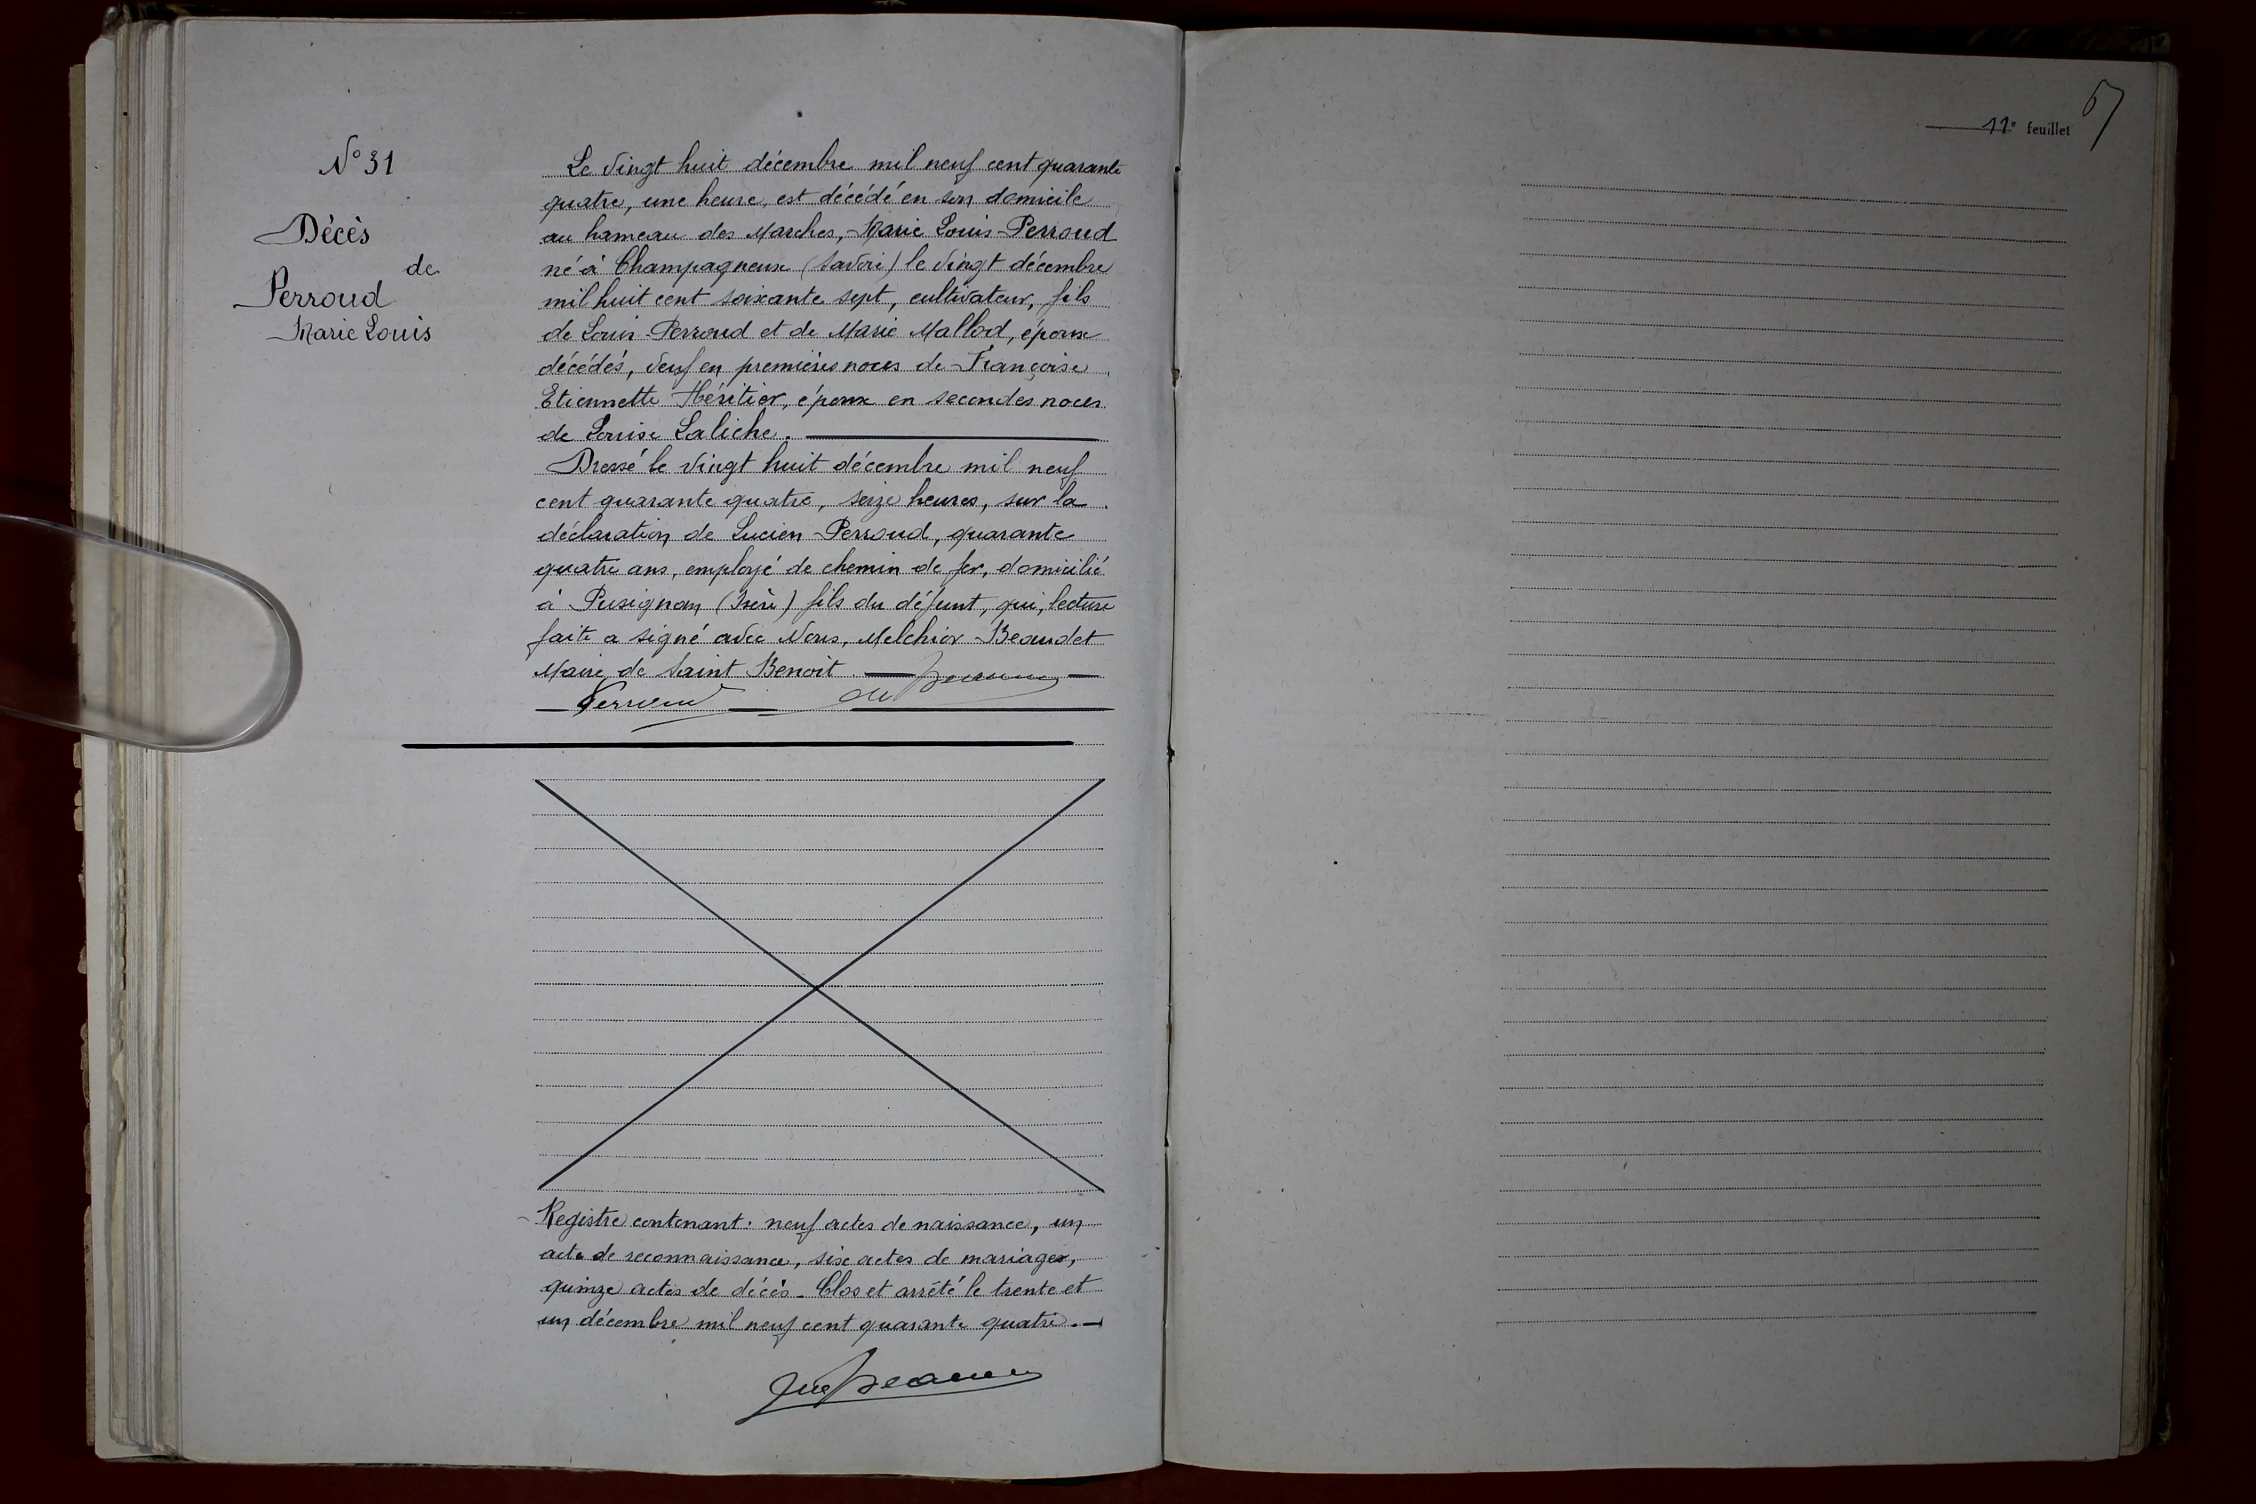 N° 31
Décès
de
Perroud
Marie Louis
Le vingt huit décembre mil neuf cent quarante
quatre, une heure, est décédé en son domicile
au hameau des Marches, Marie Louis Perroud
né à Champagneux (Savoie) le vingt décembre
mil huit cent soixante sept, cultivateur, fils
de Louis Perroud et de Marie Mallod, époux
décédés, veuf en premières noces de Françoise
Etiennette Héritier, époux en secondes noces
de Louise Laliche.
Dressé le vingt huit décembre mil neuf
cent quarante quatre, seize heures, sur la
déclaration de Lucien Perroud, quarante
quatre ans, employé de chemin de fer, domicilié
à Pusignan (Isère) fils du défunt, qui, lecture
faite a signé avec Nous, Melchior Beaudet
Maire de Saint Benoit
Perroud
Registre contenant : neuf actes de naissance, un
acte de reconnaissance, six actes de mariages,
quinze actes de décès - Clos et arrêté le trente et
un décembre mil neuf cent quarante quatre.
11e feuillet